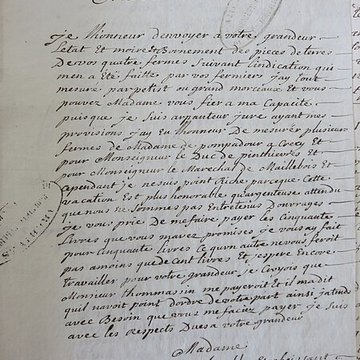 Jay Lhonneur denvoyer a votre grandeur
Letat et moire & Bornement des pieces de terres
Dervos quatre fermes Suivant Lindication qui
men a Eté faitte par vos fermiers Jay tout
mesuré par petit ou grand morceaux et vous
pouvez Madame vous fier a ma Capacité
puisque je Suis arpanteur Juré ayant mes
provisions Jay Eu Lhonneur De mesurer plusieurs
fermes de Madame de pompadour a Crecy Et
pour Monseigneur le Duc de penthievres Et
pour Monseigneur le Marechal de Maillebois Et
Cependant je ne suis point Riche parceque Cette
vacation Est plus honorable quargenteuse attendu
que nous ne Sommes pas Entretenus Douvrages
Je vous prie de me faire payer les Cinquante
Livres que vous mavez promises Je vous ay fait
pour Cinquante livres Ce quun autre ne vous feroit
pas amoins que de Cent livres Et jespere Encore
travailler pour votre grandeur, je Croyois que
Monsieur thommassin me payeroit Et il ma dit
quil navoit point dordre de votre part ainsi jattends
avec Besoin que vous me faciez payer Je Suis
avec les Respects Dues a votre grandeur
Madame